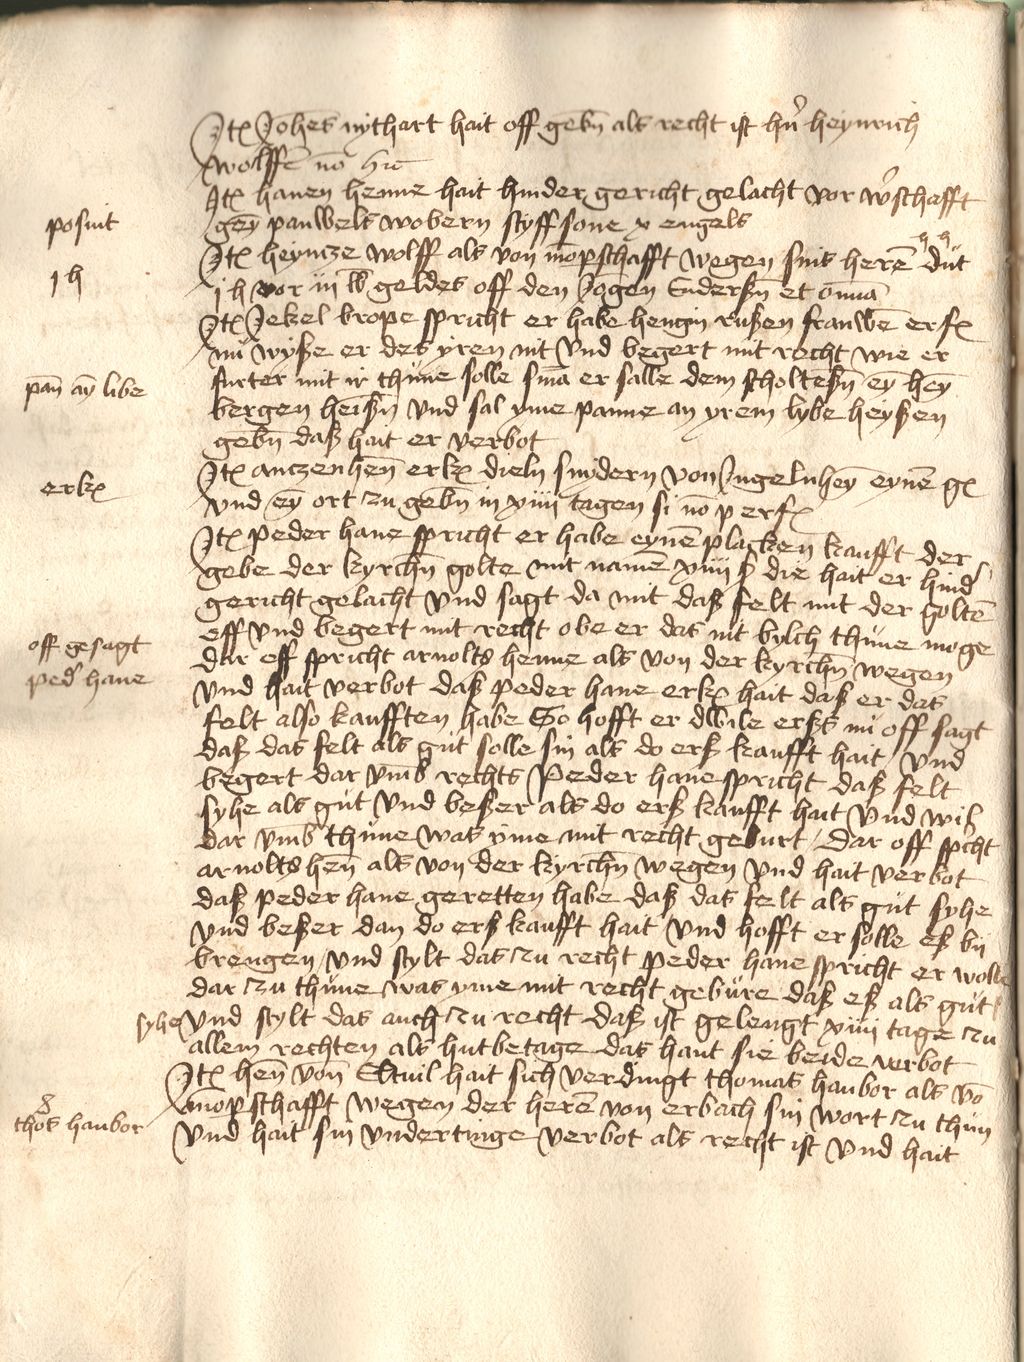 Jtē Joh̄es nythart hait off geb̄n als recht ist hn̄ heynrich
wolffē nō hīe
Jtē hanen henne hait hinder gericht gelacht vor w̉schafft
gēy pauwels wobern styffsone x engels
posuit
Jtē heyncze wolff als von mōpschafft wegen sins herē dūt
1 h vor iij lb geldes off den Jogen Endersen et ōmīa
1 h
Jtē Jekel krope spricht er habe hengin rußen frauwē erfē
nū wyße er des yren nit vnd begert mit recht wie er
furter mit ir thūne solle snīa er salle dem scholteß̄n eȳ hēy
pān aȳ libe
bergen heiß̄n vnd sal yme panne an yrem lybe heyßen
geb̄n daß hait er verbot
Jtē anczenhen̄ erkē dieln snydern von Jngelnhēy eynē gē
erkē
vnd eȳ ort zu geb̄n in xiiij tagen si nō p erfē
Jtē peder hane spricht er habe eynē placken kaufft der
gebe der kyrch̄n golte mit namē xiiij ß die hait er hind̉
gericht gelacht vnd sagt da mit daß felt mit der goltē
off gesagt
ped̉ hane
eff vnd begert mit recht obe er das nit bylch thūne moge
dar eff spricht arnolts henne als von der kyrch̄n wegen
vnd hait verbot daß peder hane erkē hait daß er das
felt also kaufften habe So hofft er dwile erßs nū off sagt
daß das felt als gūt solle sin als do erß kaufft hait vnd
begert dar vmb rechts Peder hane spricht daß felt
syhe als gūt vnd beßer als do erß kaufft hait vnd wil
dar vmb thūne was yme mit recht geburt / dar off spicht
arnolts hen̄ als von der kyrch̄n wegen vnd hait verbot
daß peder hane geretten habe daß das felt als gūt syhe
vnd beßer dan do erß kaufft hait vnd hofft er solle eß bij
brengen / vnd stylt das zu recht peder hane spricht er wolle
dar zu thūne was yme mit recht gebūre daß eß als gūt
syhe vnd stylt das auch zu recht daß ist gelengt xiiij tage zu
allem rechten als hutbetage das haut sie beide verbot
Jtē hen̄ von Eltuil hait sich verdingt thomas haubor als vō
mopschafft wegen der herē von erbach sin wort zu thūn
thōs haubor
vnd hait sin vndertinge verbot als recht ist vnd hait